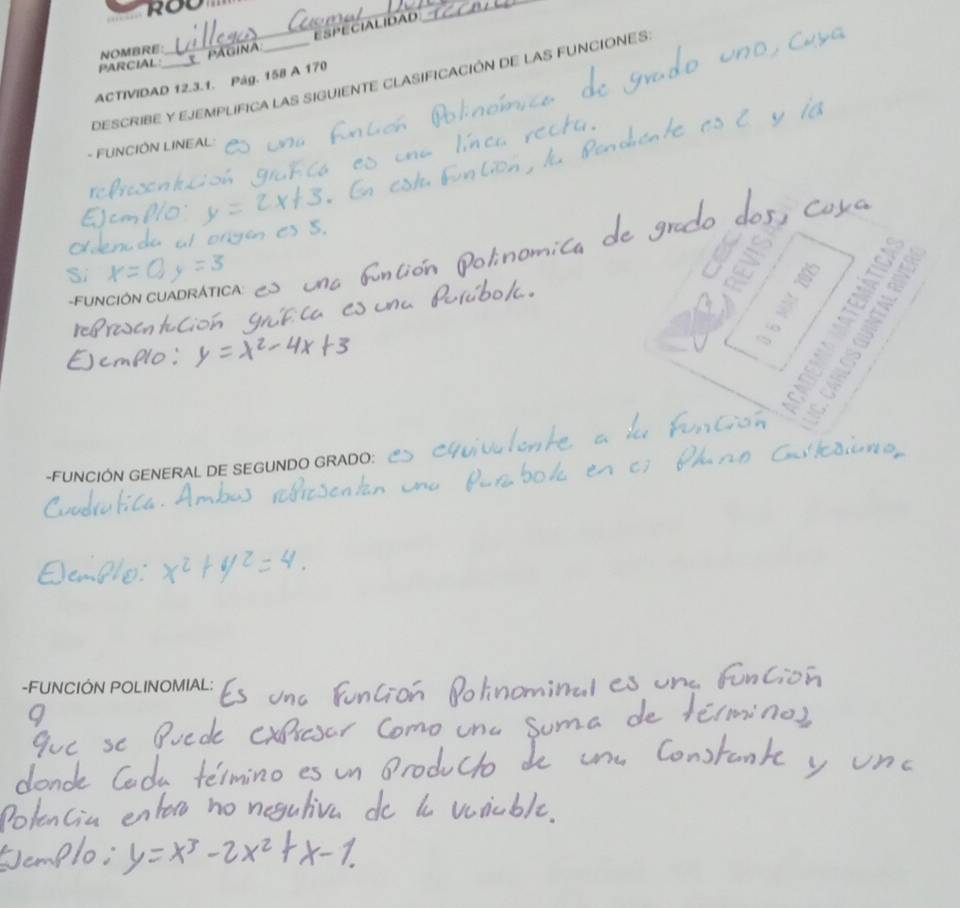 ROO
NOMBRE: Villegas Caamal
PARCIAL: 3 PÁGINA: ESPECIALIDAD:
ACTIVIDAD 12.3.1. Pág. 158 A 170
DESCRIBE Y EJEMPLIFICA LAS SIGUIENTE CLASIFICACIÓN DE LAS FUNCIONES:
- FUNCIÓN LINEAL: es una función Polinómica de grado uno, cuya
rePresentación grafica es una línea recta.
EJemPlo: y = 2x+3. En esta función, la Pendiente es 2 y la
ordenada al origen es 3.
Si x = 0, y = 3
-FUNCIÓN CUADRÁTICA: es una función Polinomica de grado dos, cuya
rePresentación grafica es una Parábola.
EJemPlo: y = x² - 4x + 3
CEC
REVIS
06 MAY 2025
ACADEMIA MATEMÁTICAS
LIC. CARLOS QUINTAL RIVERO
-FUNCIÓN GENERAL DE SEGUNDO GRADO: es equivalente a la función
Cuadratica. Ambas rePresentan una Parabola en el Plano Cartesiano.
EJemPlo: x² + y² = 4.
-FUNCIÓN POLINOMIAL: Es una función Polinominal es una función
q
que se Puede exPresar Como una suma de términos
donde Cada término es un Producto de una Constante y una
Potencia entera no negativa de la variable.
EJemPlo: y = x³ - 2x² + x - 1.